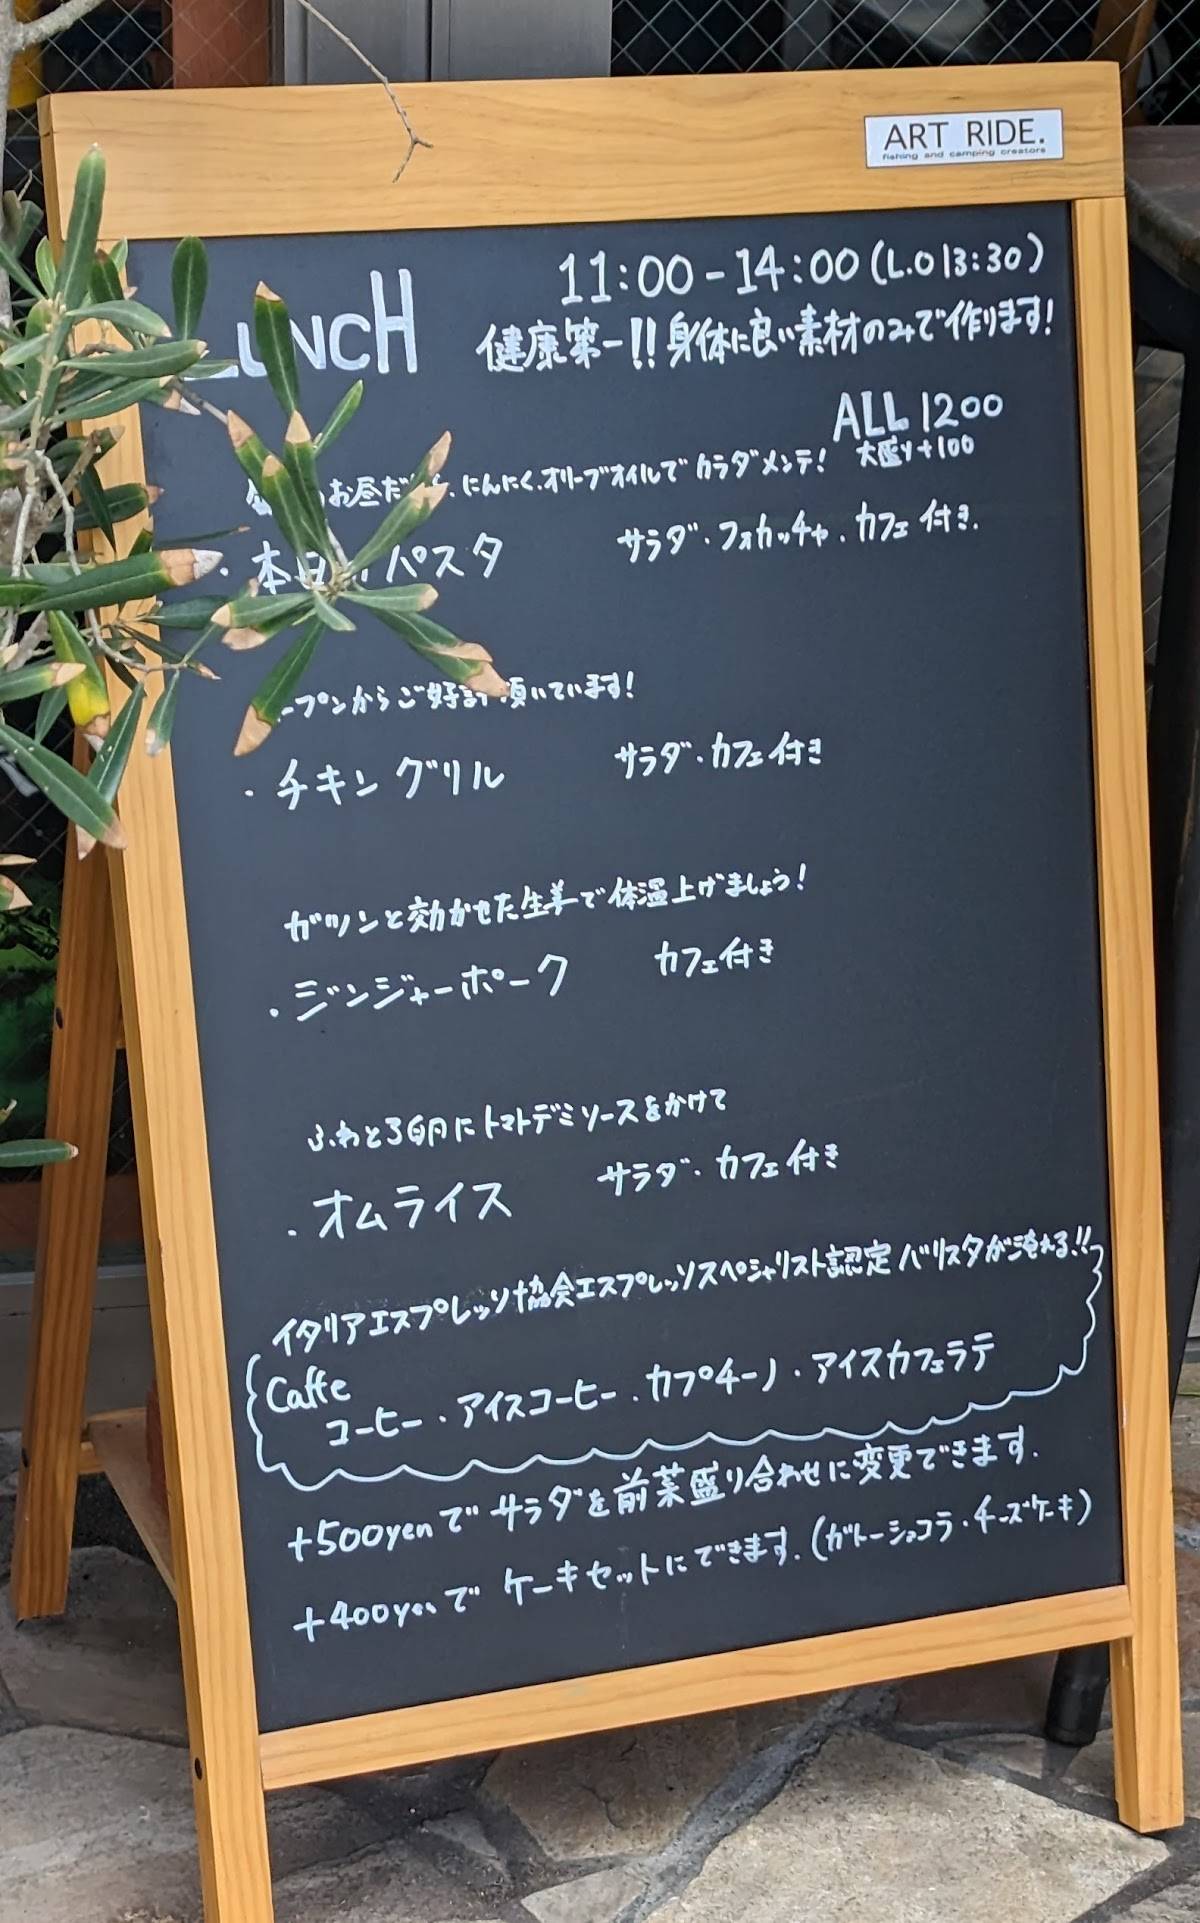 ART RIDE.
fishing and camping creators
LUNCH
11:00-14:00(L.O 13:30)
健康第一!!身体に良い素材のみで作ります!
ALL 1200
大盛り+100
お昼だ にんにく、オリーブオイルでカラダメンテ!
・本日 パスタ サラダ・フォカッチャ、カフェ付き.
ープンからご好評頂いています!
・チキングリル サラダ・カフェ付き
ガツンと効かせた生姜で体温上げましょう!
・ジンジャーポーク カフェ付き
ふわとろ卵にトマトデミソースをかけて
・オムライス サラダ・カフェ付き
イタリアエスプレッソ協会エスプレッソスペシャリスト認定バリスタが淹れる!!
Caffe
コーヒー・アイスコーヒー、カプチーノ・アイスカフェラテ
+500yenでサラダを前菜盛り合わせに変更できます.
+400yenでケーキセットにできます.(ガトーショコラ・チーズケーキ)